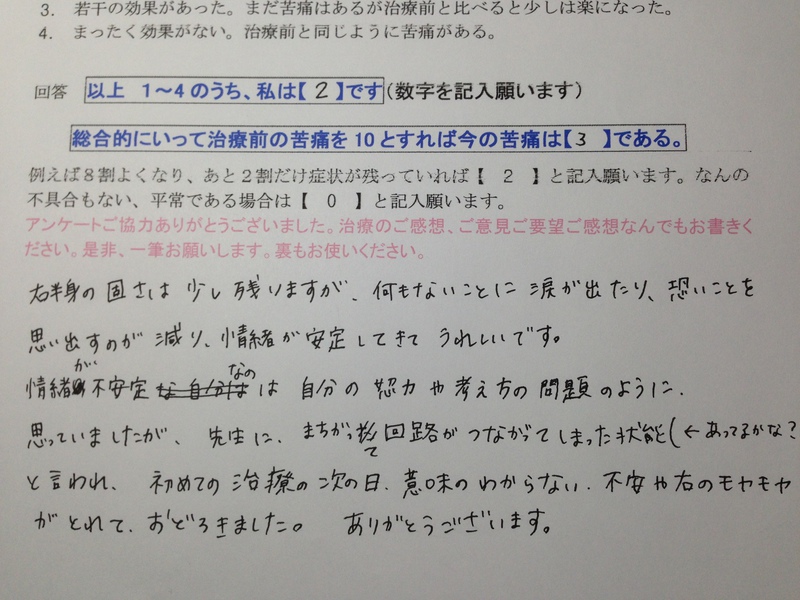 3. 若干の効果があった。まだ苦痛はあるが治療前と比べると少しは楽になった。
4. まったく効果がない。治療前と同じように苦痛がある。
回答 以上 1〜4のうち、私は【 2 】です(数字を記入願います)
総合的にいって治療前の苦痛を10とすれば今の苦痛は【 3 】である。
例えば8割よくなり、あと2割だけ症状が残っていれば【 2 】と記入願います。なんの
不具合もない、平常である場合は【 0 】と記入願います。
アンケートご協力ありがとうございました。治療のご感想、ご意見ご要望ご感想なんでもお書きく
ださい。是非、一筆お願いします。裏もお使いください。
右半身の固さは少し残りますが、何もないことに涙が出たり、恐いことを
思い出すのが減り、情緒が安定してきてうれしいです。
情緒が不安定なのは自分の努力や考え方の問題のように、
思っていましたが、先生に、まちがって回路がつながってしまった状態(←あってるかな?
と言われ、初めての治療の次の日、意味のわからない、不安や右のモヤモヤ
がとれて、おどろきました。ありがとうございます。